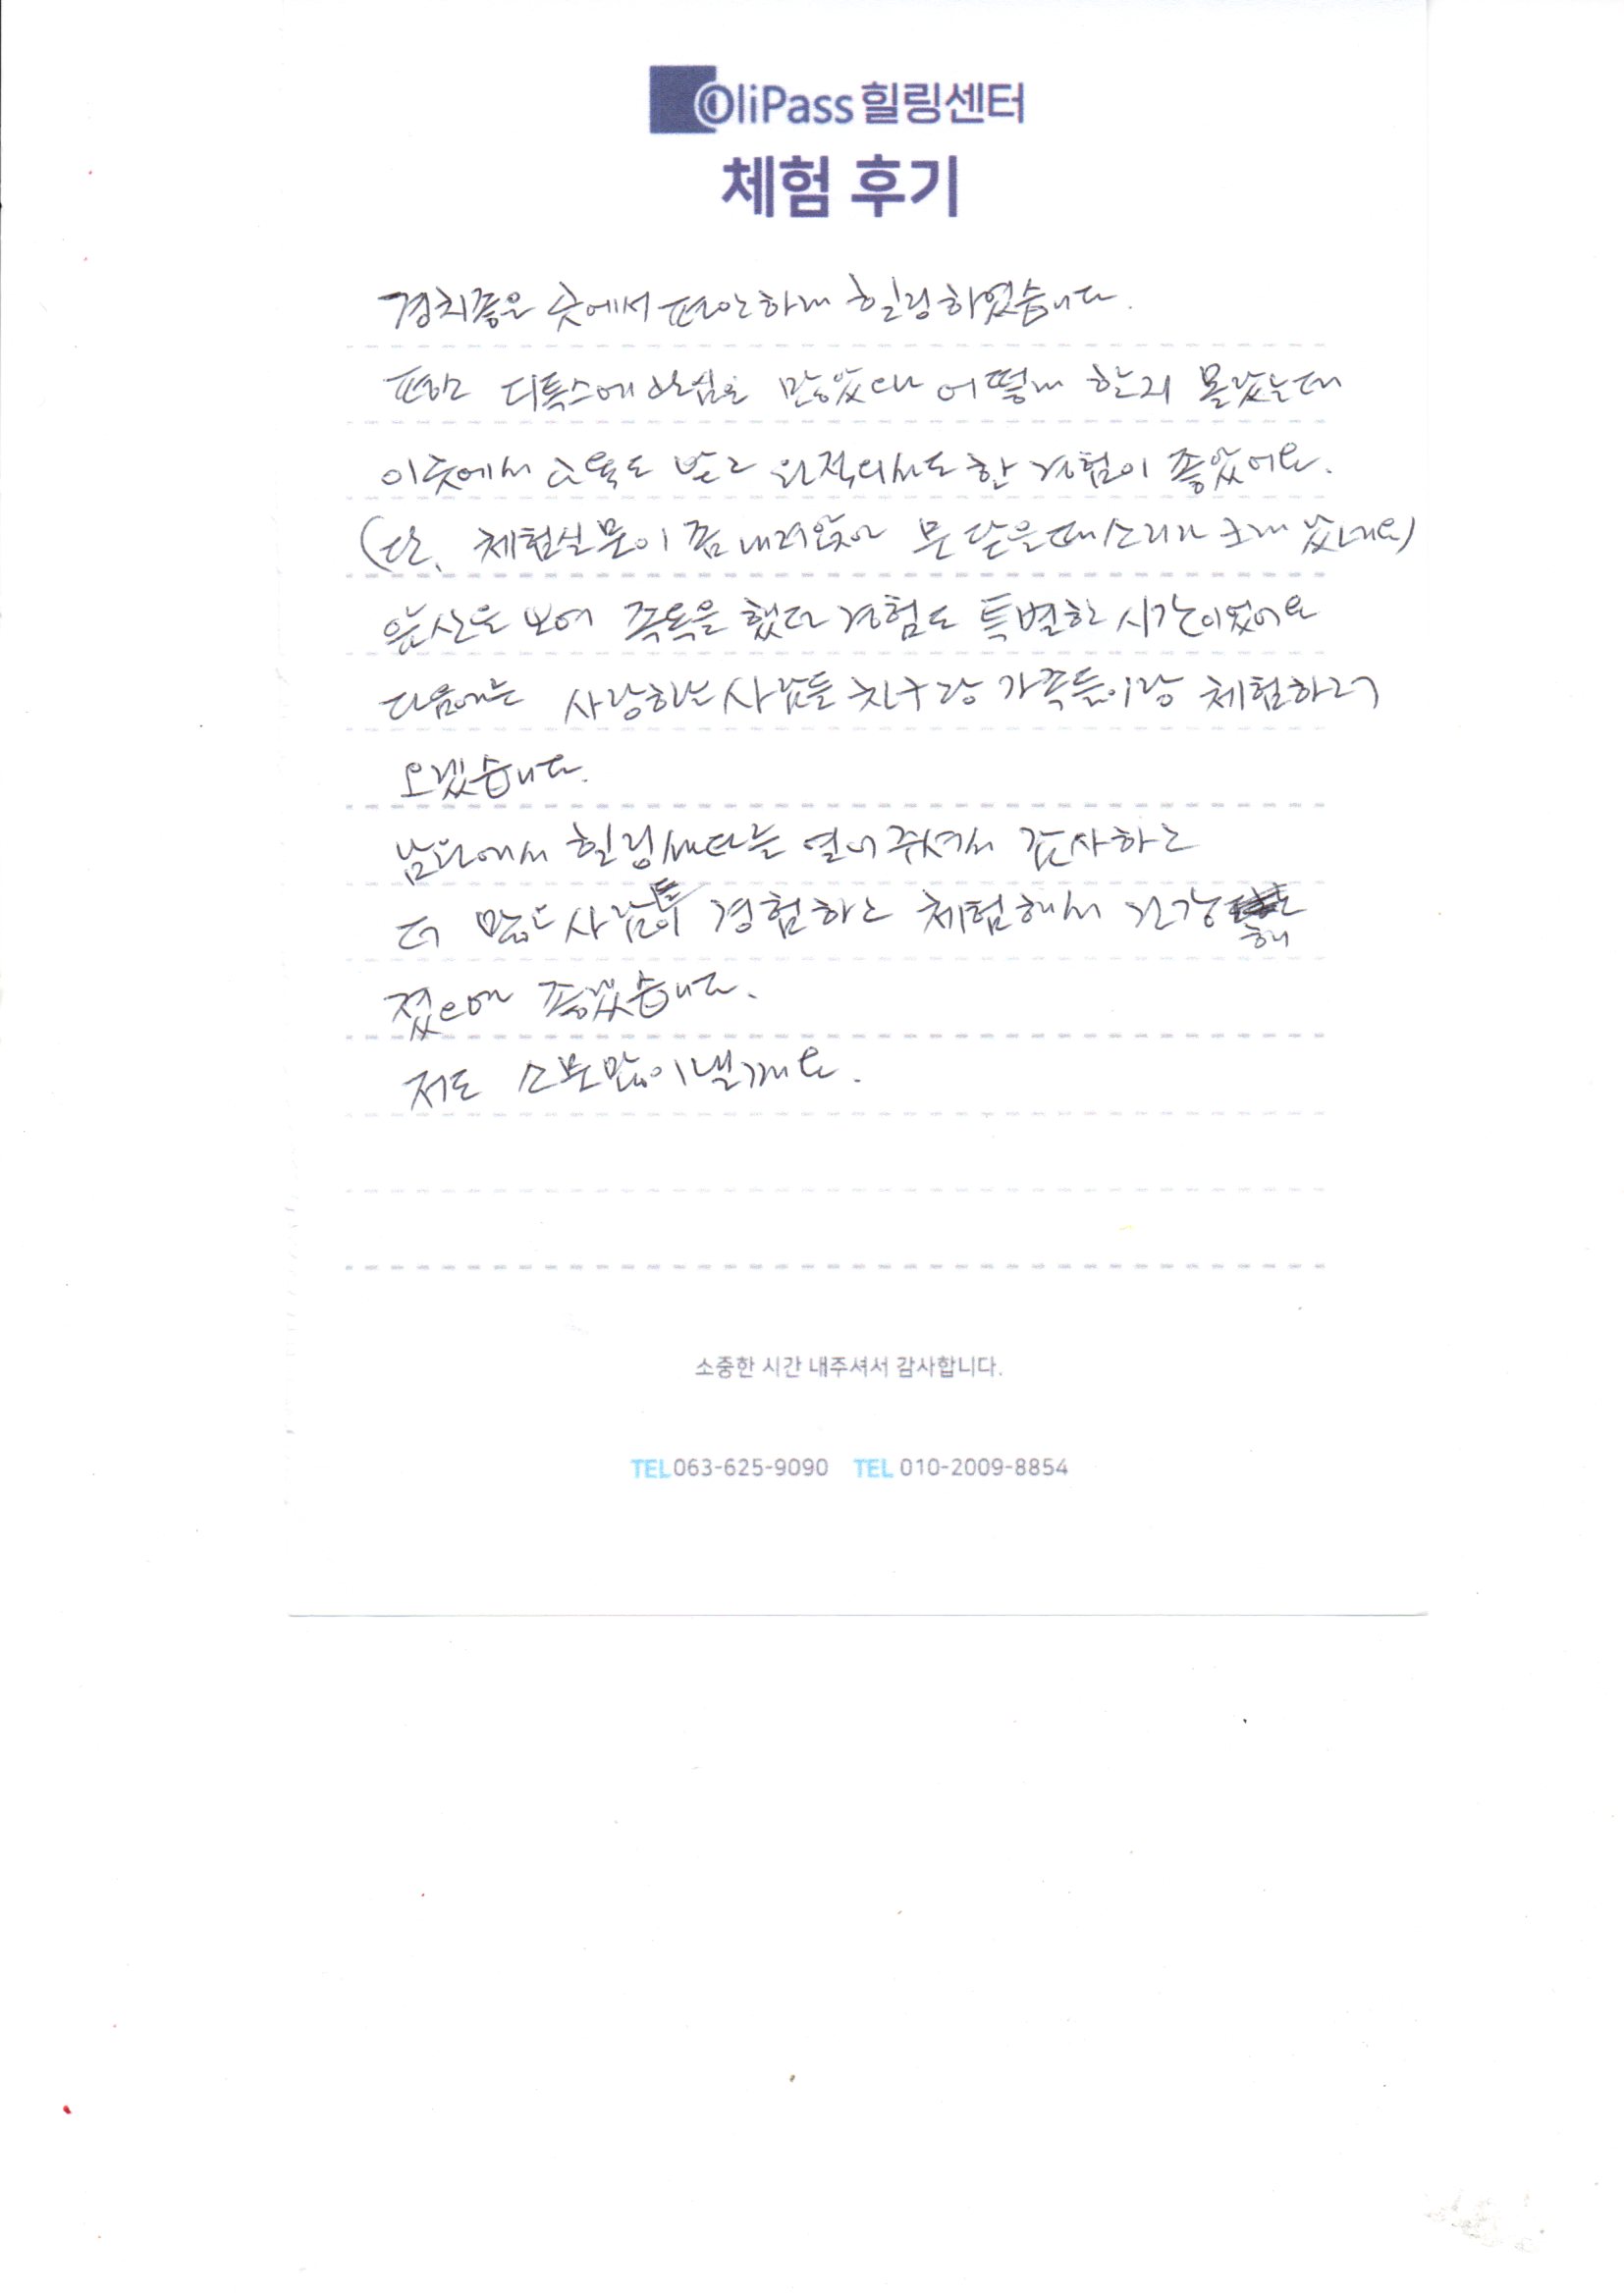 OliPass 힐링센터
체험 후기
경치좋은 곳에서 편안하게 힐링하였습니다.
평소 디톡스에 관심은 많았으나 어떻게 할지 몰랐는데
이곳에서 교육도 받고 원적외선도 한 경험이 좋았어요.
(단, 체험실 문이 좀 내려앉아 문 닫을때 소리가 크게 났네요)
앞산을 보며 족욕을 했던 경험도 특별한 시간이었어요
다음에는 사랑하는 사람들 친구랑 가족들이랑 체험하러
오겠습니다.
남원에서 힐링센타를 열어 주셔서 감사하고
더 많은 사람들이 경험하고 체험해서 건강해
졌으면 좋겠습니다.
저도 소문많이낼게요.
소중한 시간 내주셔서 감사합니다.
TEL 063-625-9090 TEL 010-2009-8854